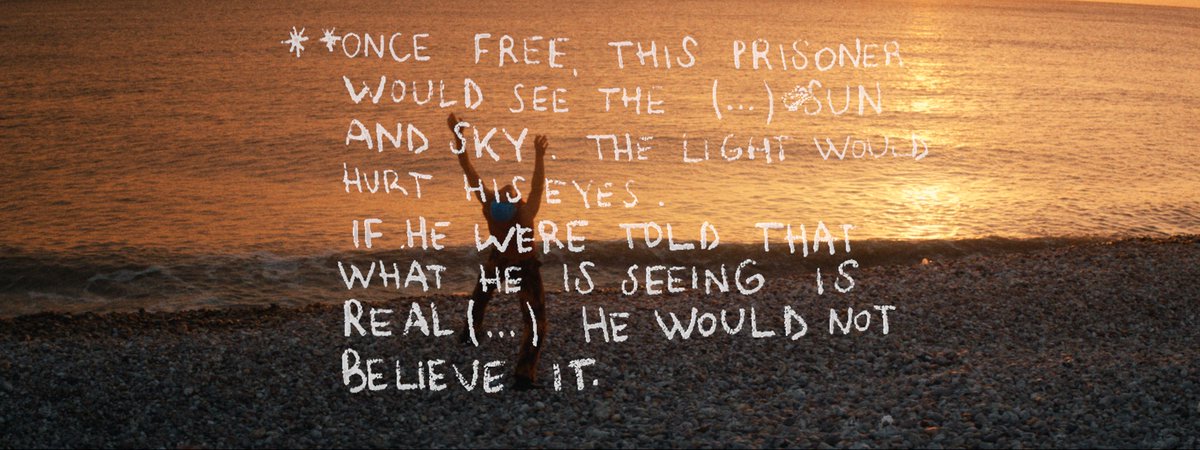 **ONCE FREE, THIS PRISONER
WOULD SEE THE (...) SUN
AND SKY. THE LIGHT WOULD
HURT HIS EYES.
IF HE WERE TOLD THAT
WHAT HE IS SEEING IS
REAL (...) HE WOULD NOT
BELIEVE IT.